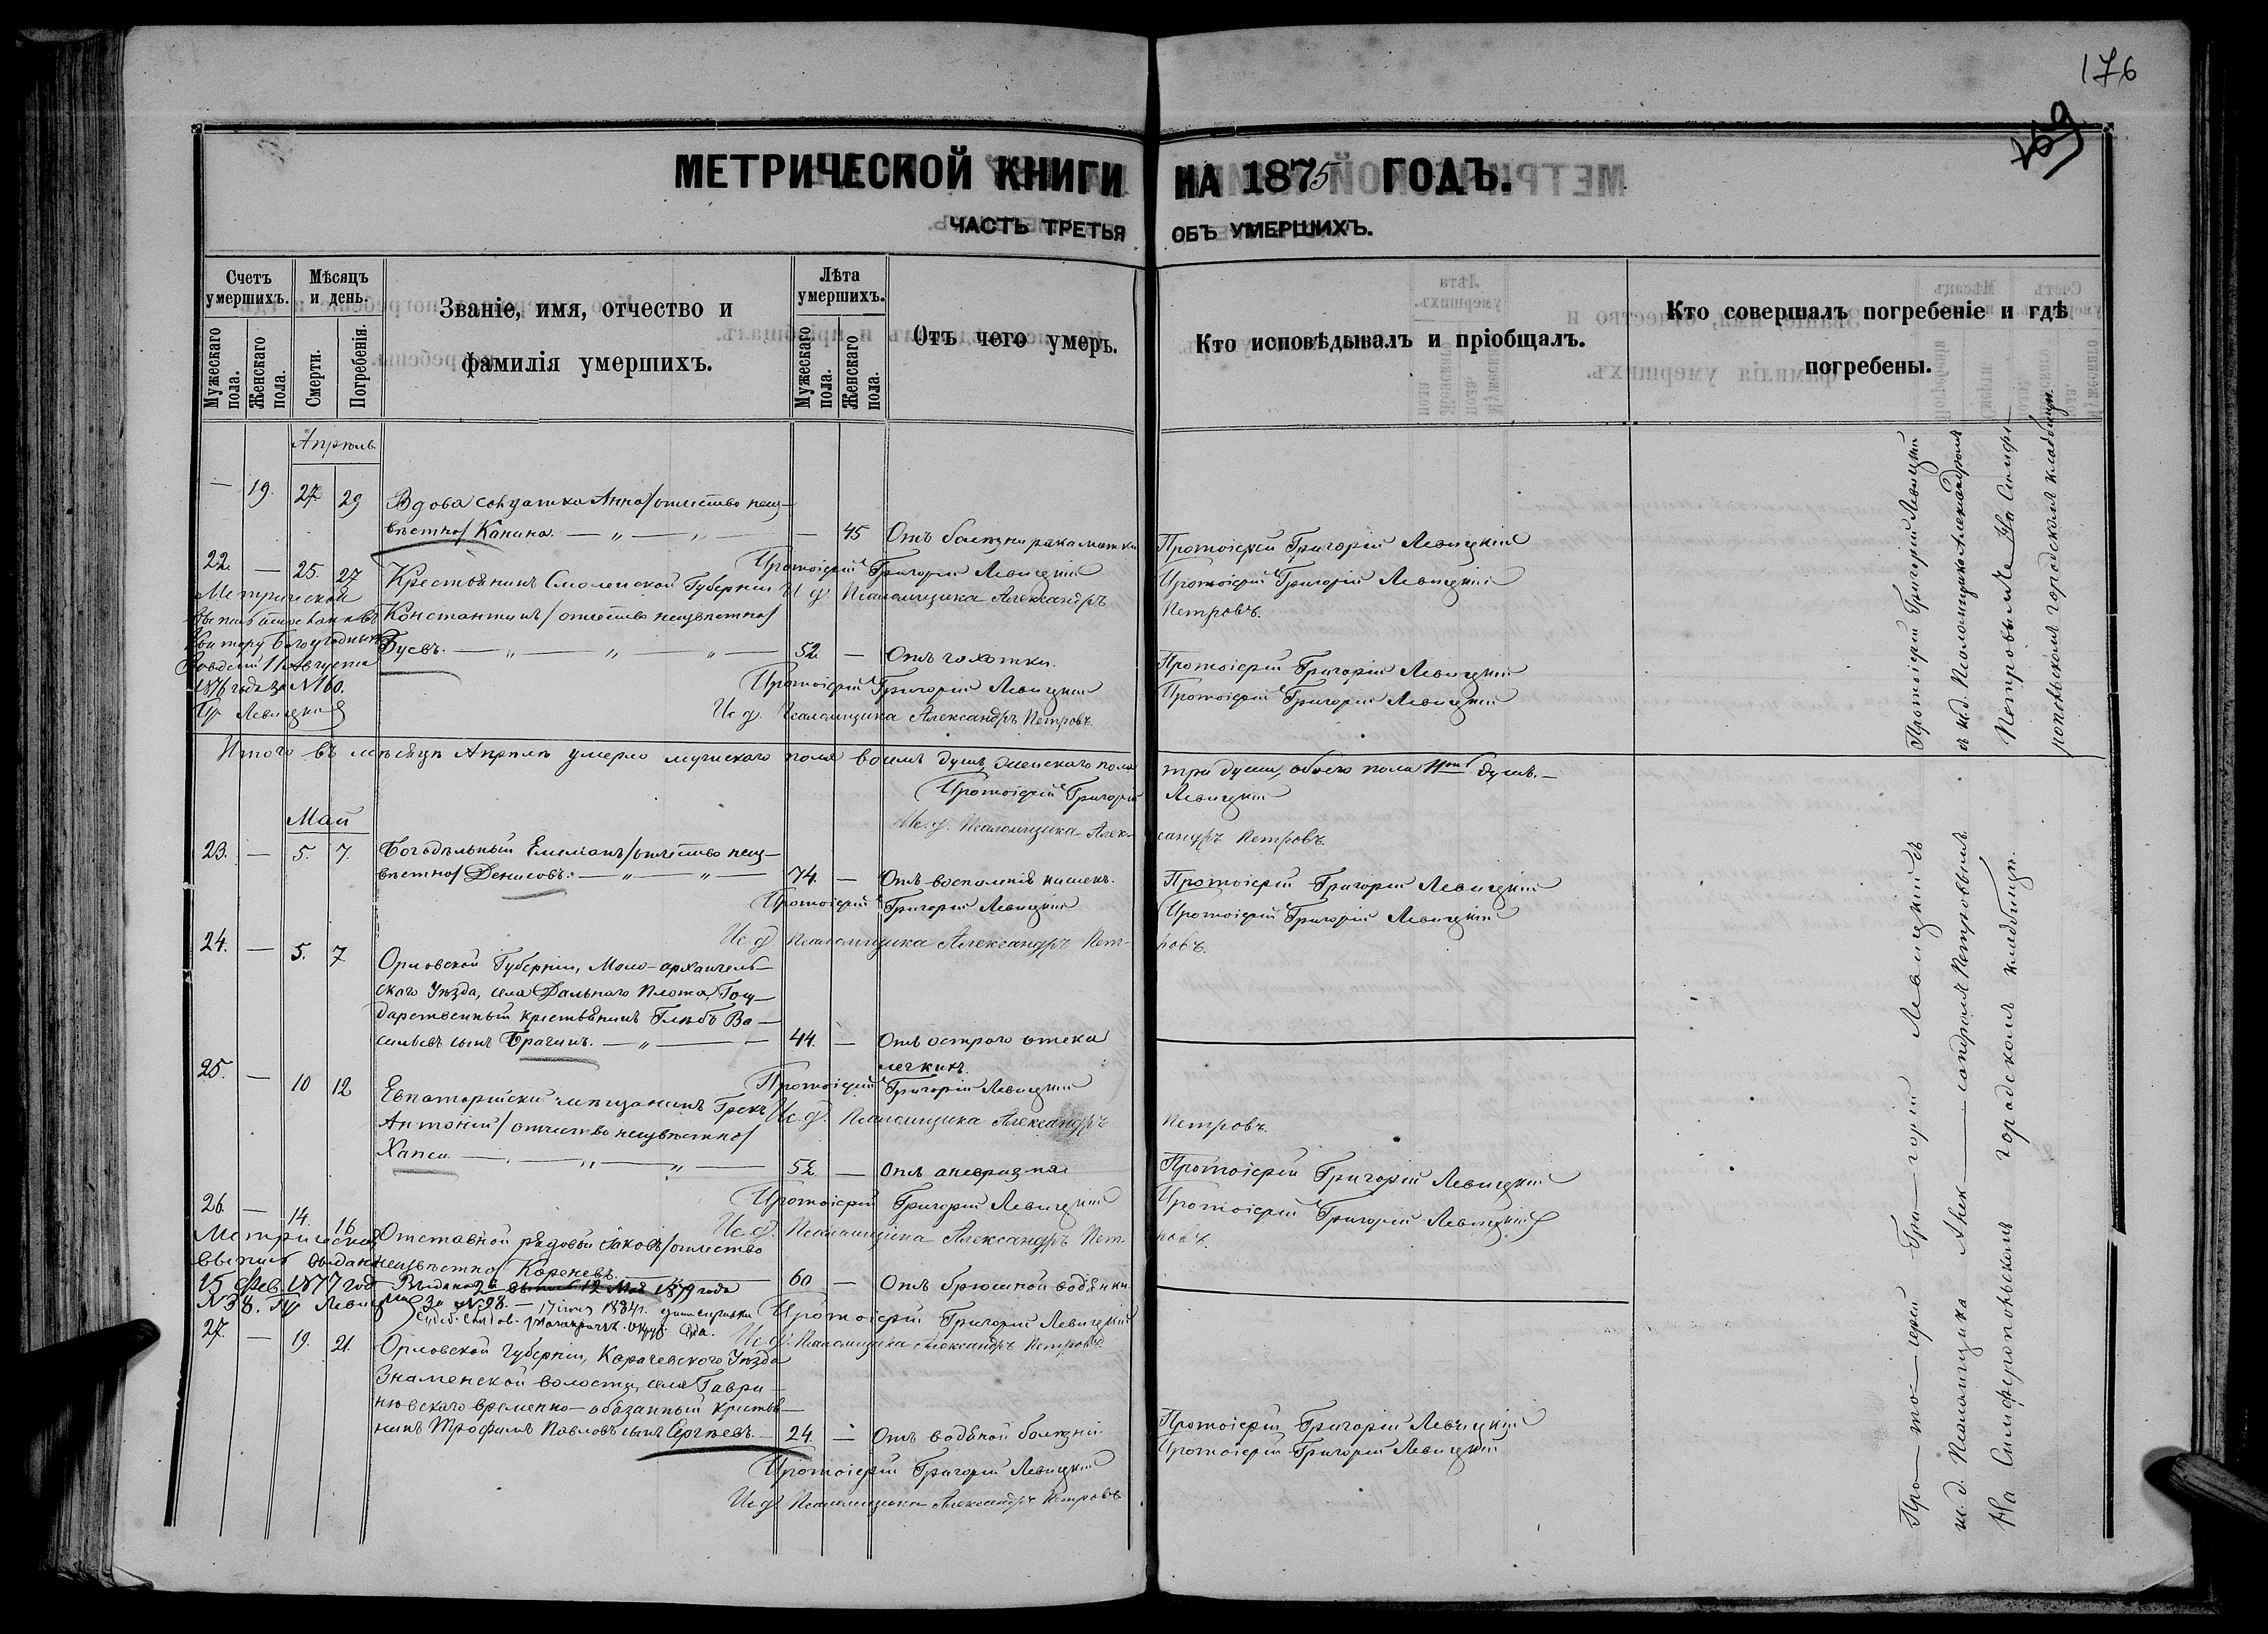 176
169
МЕТРИЧЕСКОЙ КНИГИ НА 1875 ГОДЪ.
ЧАСТЬ ТРЕТЬЯ ОБЪ УМЕРШИХЪ.
Счетъ умершихъ.
Мужескаго пола.
Женскаго пола.
Мѣсяцъ и день.
Смерти.
Погребенія.
Званіе, имя, отчество и
фамилія умершихъ.
Лѣта умершихъ.
Мужескаго пола.
Женскаго пола.
Отъ чего умеръ.
Кто исповѣдывалъ и пріобщалъ.
Кто совершалъ погребеніе и гдѣ
погребены.
Апрѣль
— 19. 27 29 Вдова солдатка Анна /отчество неиз-
вѣстно/ Канина. — 45 Отъ болѣзни рака матки
Протоіерей Григорій Левицкій
Протоіерей Григорій Левицкій
И. д. Псаломщика Александръ Петровъ.
22. — 25. 27 Крестьянинъ Смоленской Губерніи
Константинъ /отчество неизвѣстно/
Бусвъ. 52 — Отъ чахотки.
Протоіерей Григорій Левицкій
Протоіерей Григорій Левицкій
Ис. д. Псаломщика Александръ Петровъ.
Метрической
выпись
Контору Богоугодныхъ
11 Августа
1876 года за №160.
Пр Левицкій
Протоіерей Григорій Левицкій
и и. д. Псаломщика Александромъ
Петровымъ На Симфе-
ропольскомъ городскомъ кладбищѣ.
Итого въ мѣсяцѣ Апрѣлѣ умерло мужескаго пола восемь душъ, женскаго пола три души, обоего пола 11ть душъ.—
Протоіерей Григорій Левицкій
Ис. д. Псаломщика Александръ Петровъ.
Май
23. — 5. 7. Богадѣльный Емеліанъ /отчество неиз-
вѣстно/ Денисовъ. 74. — Отъ воспаленія кишекъ.
Протоіерей Григорій Левицкій
Протоіерей Григорій Левицкій
Ис. д. Псаломщика Александръ Петровъ.
24. — 5. 7 Орловской Губерніи, Мало-архангель-
скаго Уѣзда, села Дальнаго Плота, Госу-
дарственный крестьянинъ Глѣбъ Ва-
сильевъ сынъ Брагинъ. 44. — Отъ остраго отека
легкихъ.
Протоіерей Григорій Левицкій
Ис. д. Псаломщика Александръ Петровъ.
25. — 10 12 Евпаторійскій мѣщанинъ Грекъ
Антоній /отчество неизвѣстно/
Хапси. 52 — Отъ аневризма
Протоіерей Григорій Левицкій
Протоіерей Григорій Левицкій
Протоіерей Григорій Левицкій
Ис. д. Псаломщика Александръ Петровъ.
26. — 14. 16 Отставной рядовой Яковъ /отчество
неизвѣстно/ Кореневъ. 60 — Отъ брюшной водянки.
Метрическая
выпись выдана
15 Фев. 1877 год
№38. Пр Левицкій
Выдана 2я выпись 12 Мая 1879 года
За №98. — 17 іюня 1884 г. дана справка
Протоіерей Григорій Левицкій
Ис. д. Псаломщика Александръ Петровъ
27. — 19. 21. Орловской Губерніи, Карачевскаго Уѣзда
Знаменской волости, села Гаври-
ловскаго временно-обязанный крестья-
нинъ Трофимъ Павловъ сынъ Сергѣевъ. 24. — Отъ водяной болѣзни
Протоіерей Григорій Левицкій
Протоіерей Григорій Левицкій
Протоіерей Григорій Левицкій
Ис. д. Псаломщика Александръ Петровъ
Про—то—іерей Гри—горій Левицкій съ
и. д. Псаломщика Алек—сандромъ Петровымъ
На Симферопольскомъ городскомъ кладбищѣ.